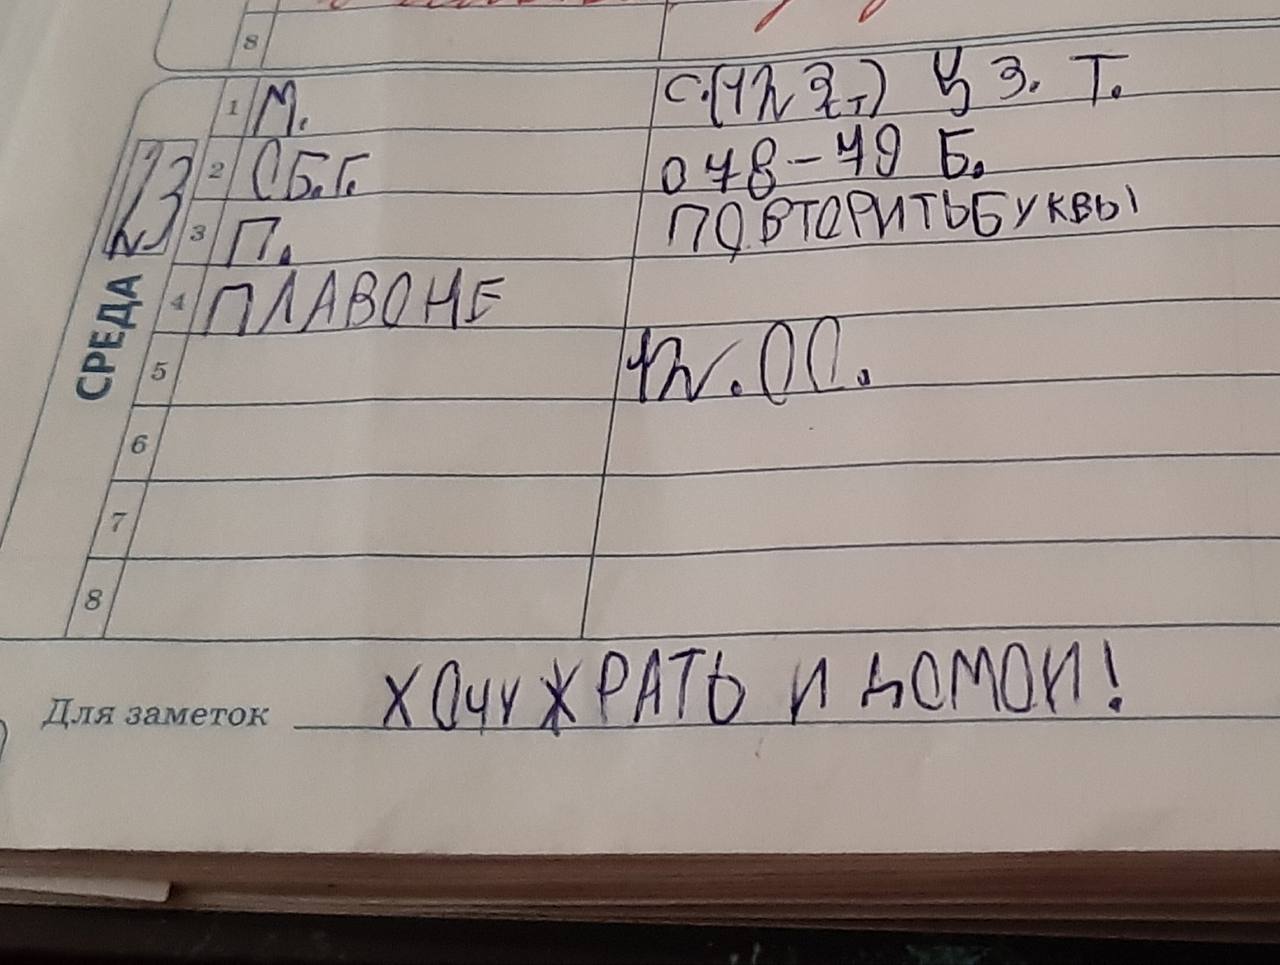 8
1 М. С.(12 2т) У 3. Т.
2 СБ.Г. 078-79 Б.
23
3 П. ПОВТОРИТЬБУКВЫ
4 ПЛАВОНЕ
СРЕДА
5 12.00.
6
7
8
Для заметок ХОЧУ ЖРАТЬ И ДОМОИ!